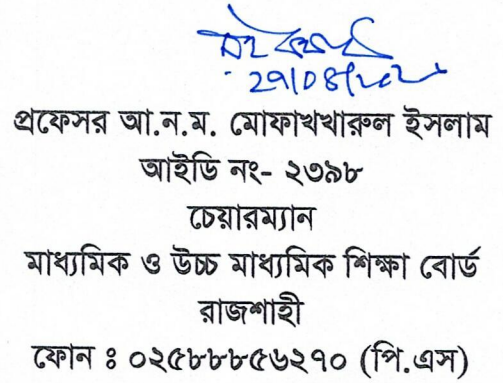 ২৭/০৪/২০২
প্রফেসর আ.ন.ম. মোফাখখারুল ইসলাম
আইডি নং- ২৩৯৮
চেয়ারম্যান
মাধ্যমিক ও উচ্চ মাধ্যমিক শিক্ষা বোর্ড
রাজশাহী
ফোন ঃ ০২৫৮৮৮৫৬২৭০ (পি.এস)